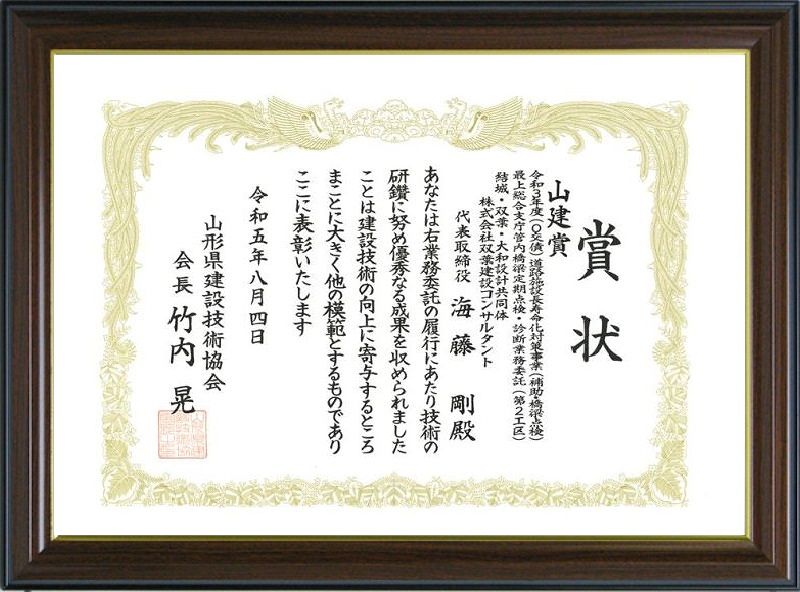 賞状
山建賞
令和3年度(〇交債)道路施設長寿命化対策事業(補助・橋梁点検)
最上総合支庁管内橋梁定期点検・診断業務委託(第2工区)
結城・双葉・大和設計共同体
株式会社双葉建設コンサルタント
代表取締役 海藤 剛殿
あなたは右業務委託の履行にあたり技術の
研鑽に努め優秀なる成果を収められました
ことは建設技術の向上に寄与するところ
まことに大きく他の模範とするものであり
ここに表彰いたします
令和五年八月四日
山形県建設技術協会
会長 竹内 晃